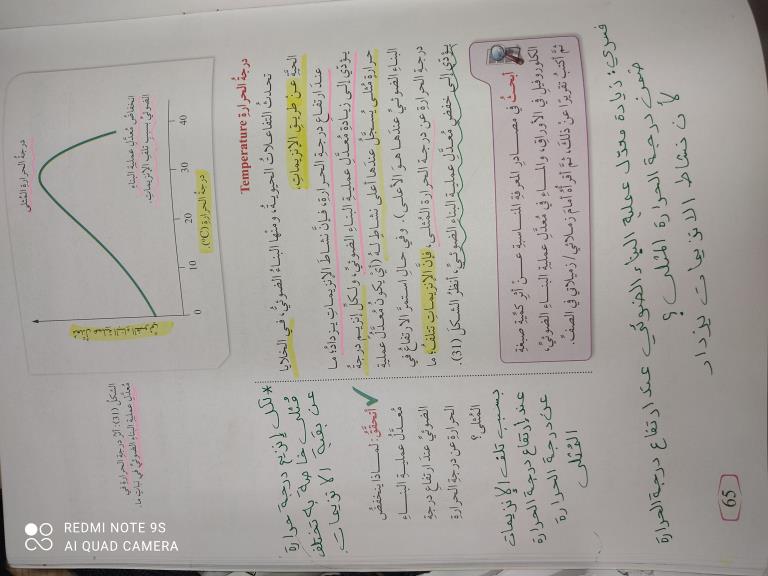 درجة الحرارة المثلى
انخفاض معدل عملية البناء
الضوئي بسبب تلف الإنزيمات.
0
10
20
30
40
درجة الحرارة (°C)
الشكل (31): أثر درجة الحرارة في
معدل عملية البناء الضوئي في نبات ما.
درجة الحرارة Temperature
تحدث التفاعلات الحيوية، ومنها البناء الضوئي، في الخلايا
الحية عن طريق الإنزيمات.
عند ارتفاع درجة الحرارة، فإن نشاط الإنزيمات يزداد؛ ما
يؤدي إلى زيادة معدل عملية البناء الضوئي، ولكل إنزيم درجة
حرارة مثلى يسجل عندها أعلى نشاط له (أي يكون معدل عملية
البناء الضوئي عندها هو الأعلى). وفي حال استمر الارتفاع في
درجة الحرارة عن درجة الحرارة المثلى، فإن الإنزيمات تتلف؛ ما
يؤدي إلى خفض معدل عملية البناء الضوئي، أنظر الشكل (31).
* لكل إنزيم درجة حرارة
مثلى خاصة به تختلف
عن بقية الانزيمات.
✓ أتحقق: لماذا ينخفض
معدل عملية البناء
الضوئي عند ارتفاع درجة
الحرارة عن درجة الحرارة
المثلى؟
بسبب تلف الإنزيمات
عند ارتفاع درجة الحرارة
عن درجة الحرارة
المثلى
أبحث في مصادر المعرفة المناسبة عن أثر كمية صبغة
الكلوروفيل في الأوراق، والماء في معدل عملية البناء الضوئي،
ثم أكتب تقريرًا عن ذلك، ثم أقرأه أمام زملائي/ زميلاتي في الصف.
فسري: زيادة معدل عملية البناء الضوئي عند ارتفاع درجة الحرارة
ضمن درجة الحرارة المثلى؟
لأن نشاط الانزيمات يزداد
65
REDMI NOTE 9S
AI QUAD CAMERA